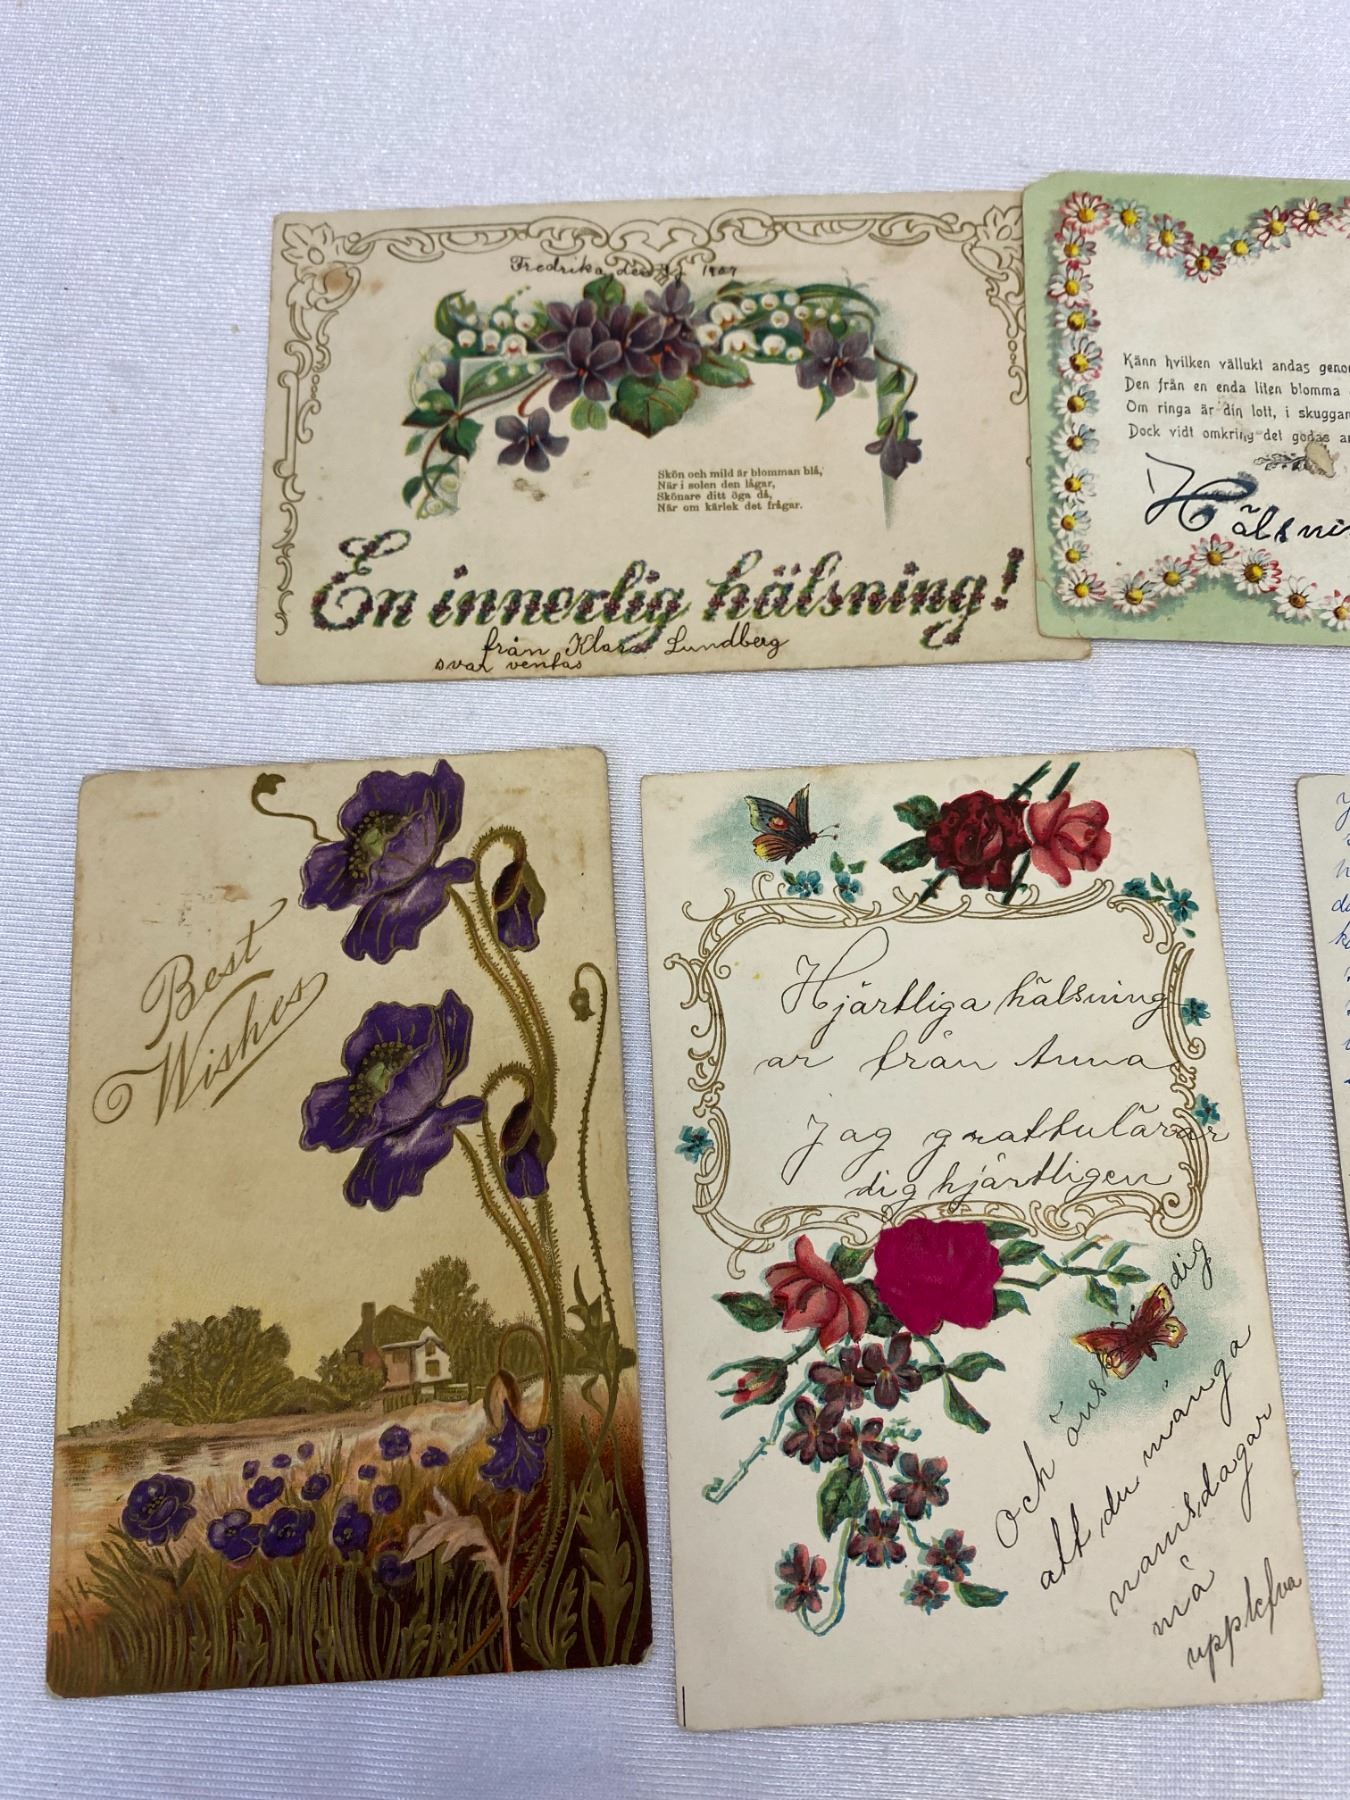 Fredrika den 1907
Skön och mild är blomman blå,
När i solen den lågar,
Skönare ditt öga då,
När om kärlek det frågar.
En innerlig hälsning!
från Klara Lundberg
svar ventas
Känn hvilken vällukt andas geno
Den från en enda liten blomma
Om ringa är din lott, i skuggan
Dock vidt omkring det godas a
Hälsnin
Best
Wishes
Hjärtliga hälsning
ar från Anna
Jag grattulärar
dig hjärtligen
Och önskar dig
att du många
namsdagar
må
upplefva